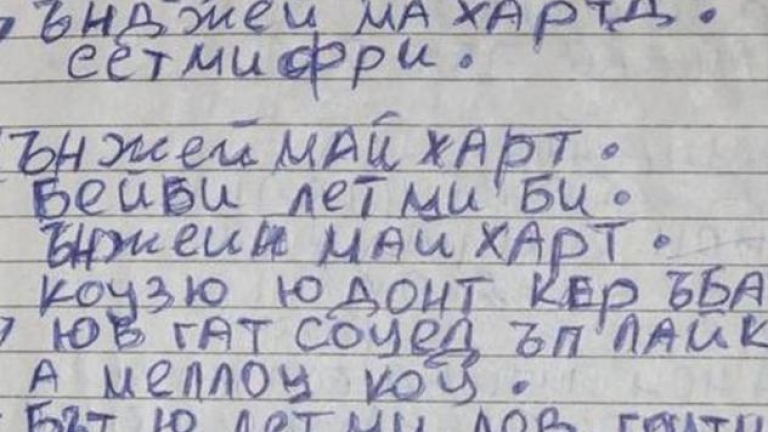 ЪНДЖЕЙ МА ХАРТД.
СЕТ МИ ФРИ.
ЪНЖЕЙ МАЙ ХАРТ.
БЕЙБИ ЛЕТ МИ БИ.
ЪНЖЕИН МАЙ ХАРТ.
КОУЗЮ Ю ДОНТ КЕР ЪБА
ЮВ ГАТ СОУЕД ЪП ЛАЙК
А МЕЛЛОУ КОУ.
БЪТ Ю ЛЕТ МИ ЛОВ